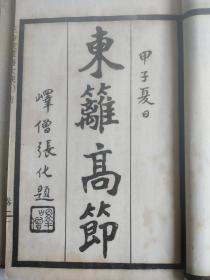 甲子夏日
東籬高節
嶧僧張化題